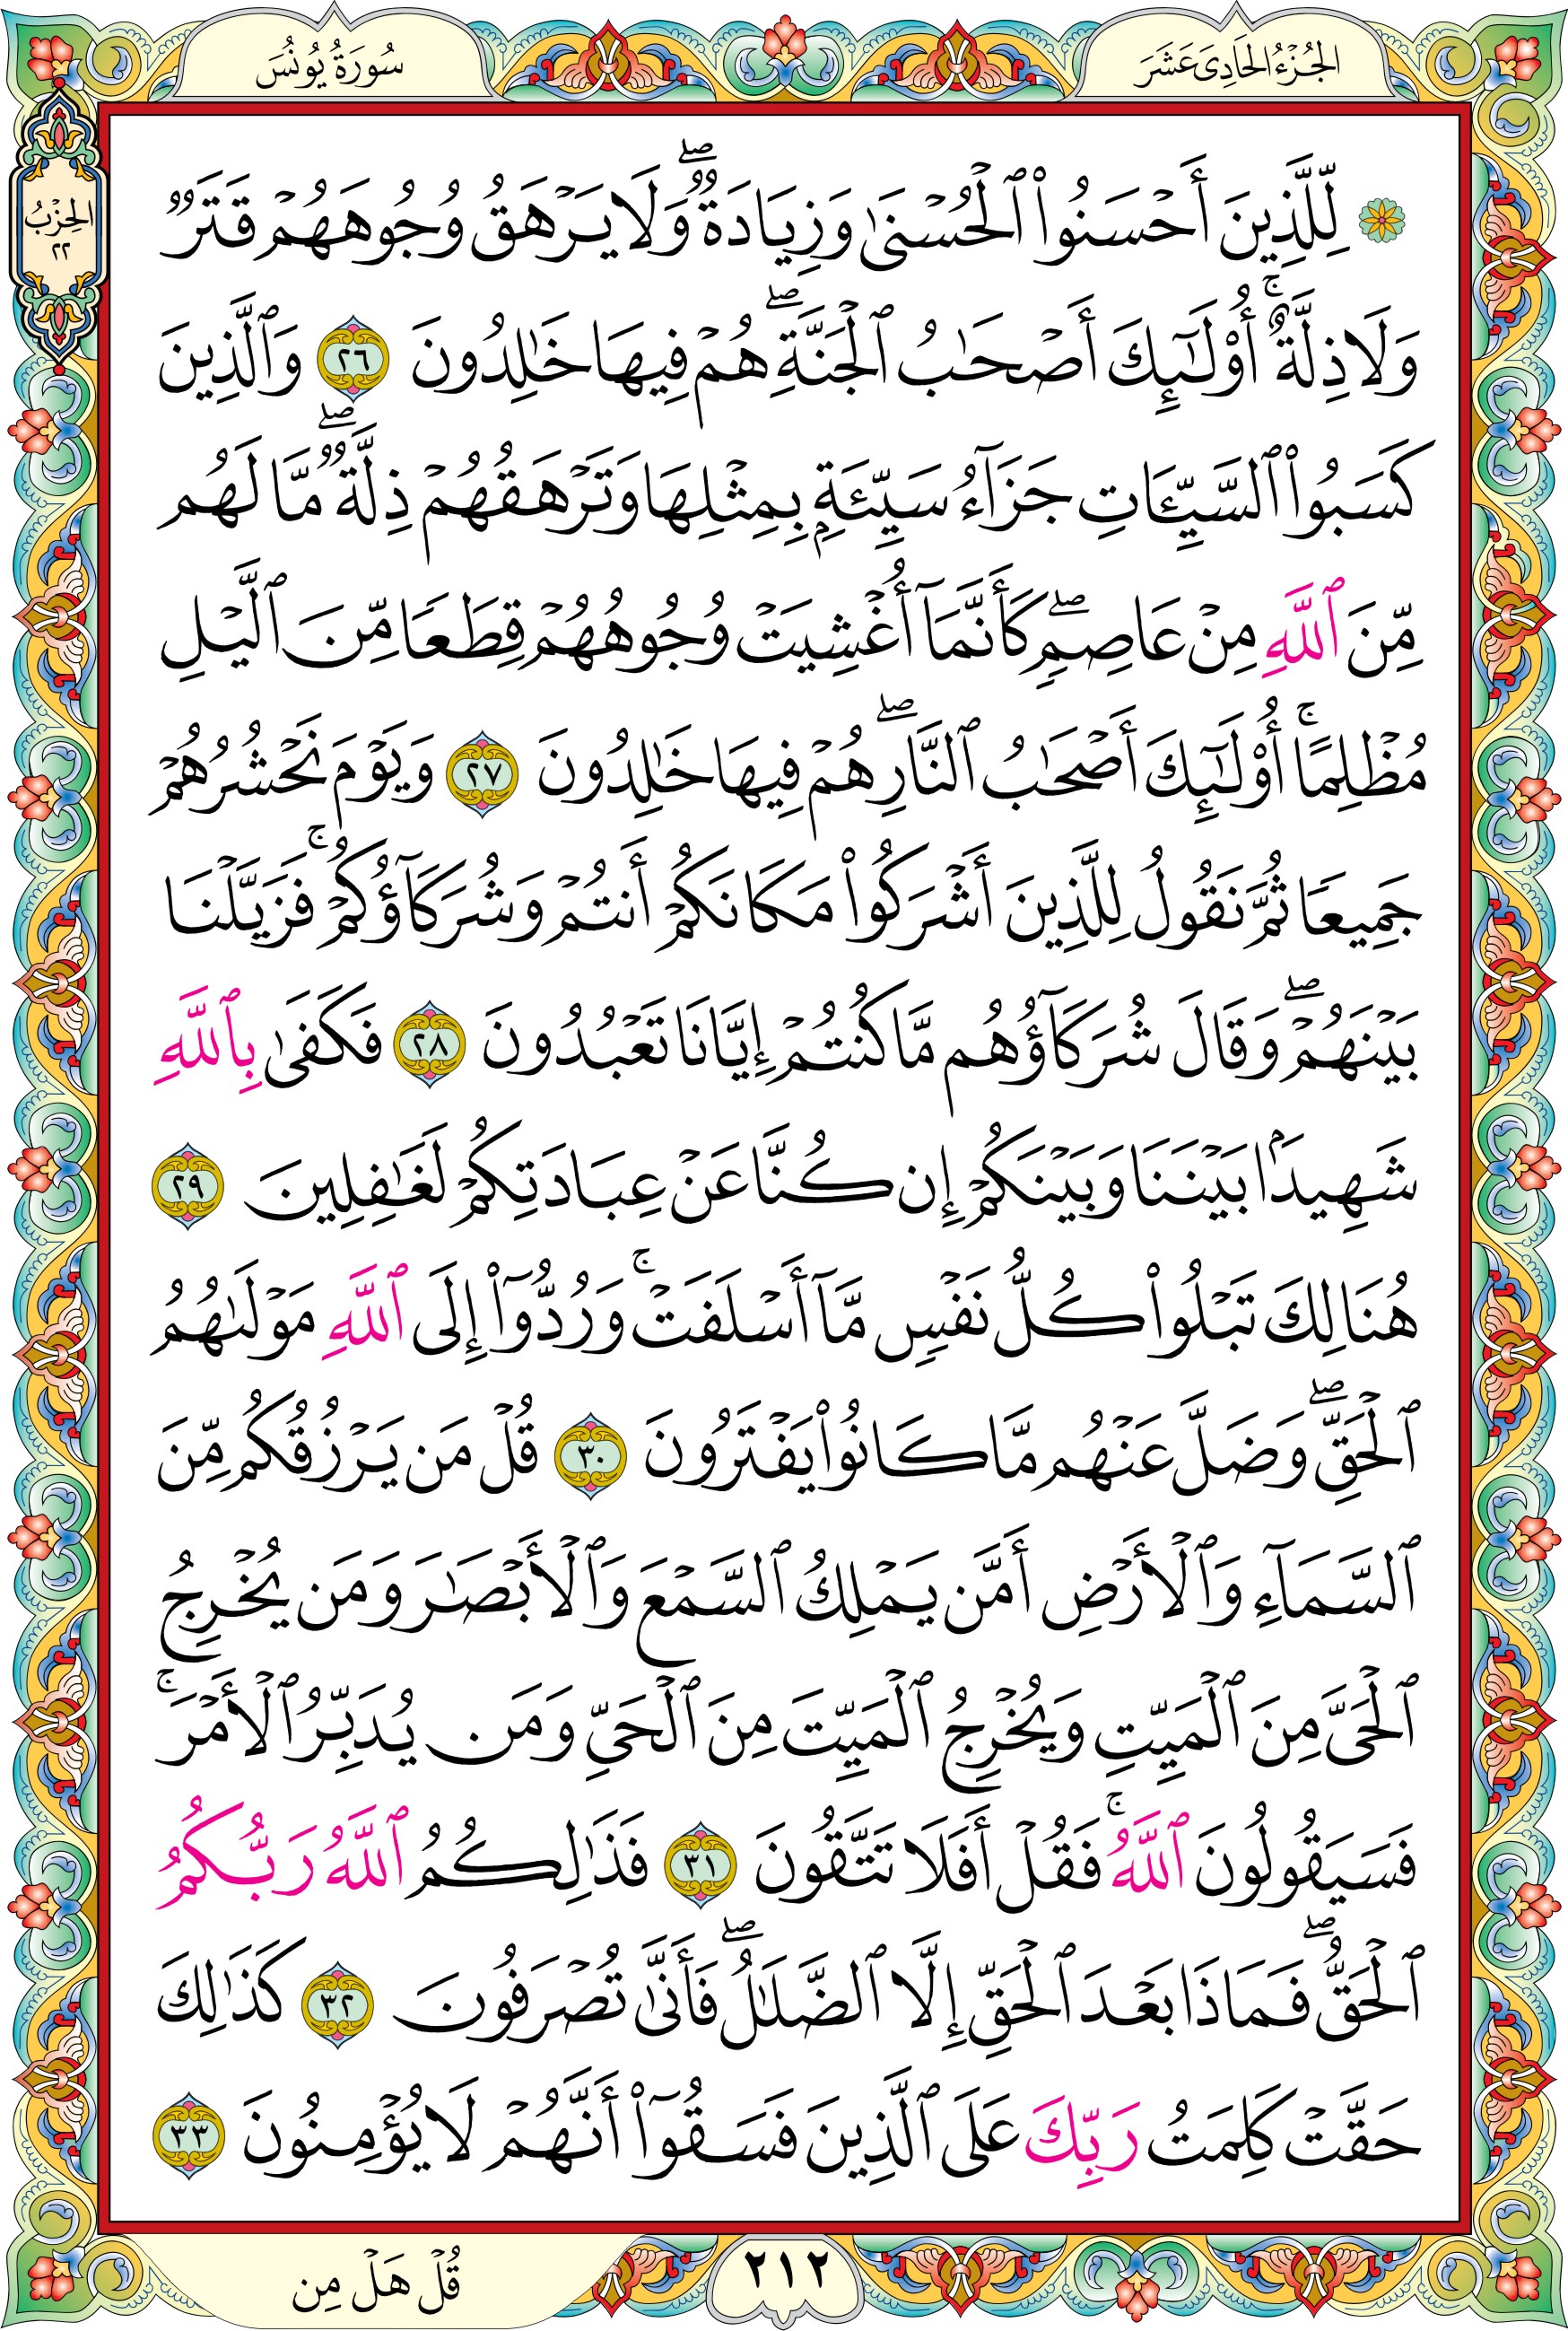 الجُزْءُ الحَادِى عَشَرَ
سُورَةُ يُونُسَ
الحِزْبُ
٢٢
۞ لِّلَّذِينَ أَحْسَنُوا۟ ٱلْحُسْنَىٰ وَزِيَادَةٌۖ وَلَا يَرْهَقُ وُجُوهَهُمْ قَتَرٌ
وَلَا ذِلَّةٌۚ أُو۟لَـٰٓئِكَ أَصْحَـٰبُ ٱلْجَنَّةِۖ هُمْ فِيهَا خَـٰلِدُونَ ٢٦ وَٱلَّذِينَ
كَسَبُوا۟ ٱلسَّيِّـَٔاتِ جَزَآءُ سَيِّئَةٍۭ بِمِثْلِهَا وَتَرْهَقُهُمْ ذِلَّةٌۖ مَّا لَهُم
مِّنَ ٱللَّهِ مِنْ عَاصِمٍۖ كَأَنَّمَآ أُغْشِيَتْ وُجُوهُهُمْ قِطَعًا مِّنَ ٱلَّيْلِ
مُظْلِمًاۚ أُو۟لَـٰٓئِكَ أَصْحَـٰبُ ٱلنَّارِۖ هُمْ فِيهَا خَـٰلِدُونَ ٢٧ وَيَوْمَ نَحْشُرُهُمْ
جَمِيعًا ثُمَّ نَقُولُ لِلَّذِينَ أَشْرَكُوا۟ مَكَانَكُمْ أَنتُمْ وَشُرَكَآؤُكُمْۚ فَزَيَّلْنَا
بَيْنَهُمْۖ وَقَالَ شُرَكَآؤُهُم مَّا كُنتُمْ إِيَّانَا تَعْبُدُونَ ٢٨ فَكَفَىٰ بِٱللَّهِ
شَهِيدًۢا بَيْنَنَا وَبَيْنَكُمْ إِن كُنَّا عَنْ عِبَادَتِكُمْ لَغَـٰفِلِينَ ٢٩
هُنَالِكَ تَبْلُوا۟ كُلُّ نَفْسٍ مَّآ أَسْلَفَتْۚ وَرُدُّوٓا۟ إِلَى ٱللَّهِ مَوْلَىٰهُمُ
ٱلْحَقِّۖ وَضَلَّ عَنْهُم مَّا كَانُوا۟ يَفْتَرُونَ ٣٠ قُلْ مَن يَرْزُقُكُم مِّنَ
ٱلسَّمَآءِ وَٱلْأَرْضِ أَمَّن يَمْلِكُ ٱلسَّمْعَ وَٱلْأَبْصَـٰرَ وَمَن يُخْرِجُ
ٱلْحَىَّ مِنَ ٱلْمَيِّتِ وَيُخْرِجُ ٱلْمَيِّتَ مِنَ ٱلْحَىِّ وَمَن يُدَبِّرُ ٱلْأَمْرَۚ
فَسَيَقُولُونَ ٱللَّهُۚ فَقُلْ أَفَلَا تَتَّقُونَ ٣١ فَذَٰلِكُمُ ٱللَّهُ رَبُّكُمُ
ٱلْحَقُّۖ فَمَاذَا بَعْدَ ٱلْحَقِّ إِلَّا ٱلضَّلَـٰلُۖ فَأَنَّىٰ تُصْرَفُونَ ٣٢ كَذَٰلِكَ
حَقَّتْ كَلِمَتُ رَبِّكَ عَلَى ٱلَّذِينَ فَسَقُوٓا۟ أَنَّهُمْ لَا يُؤْمِنُونَ ٣٣
٢١٢
قُلْ هَلْ مِن